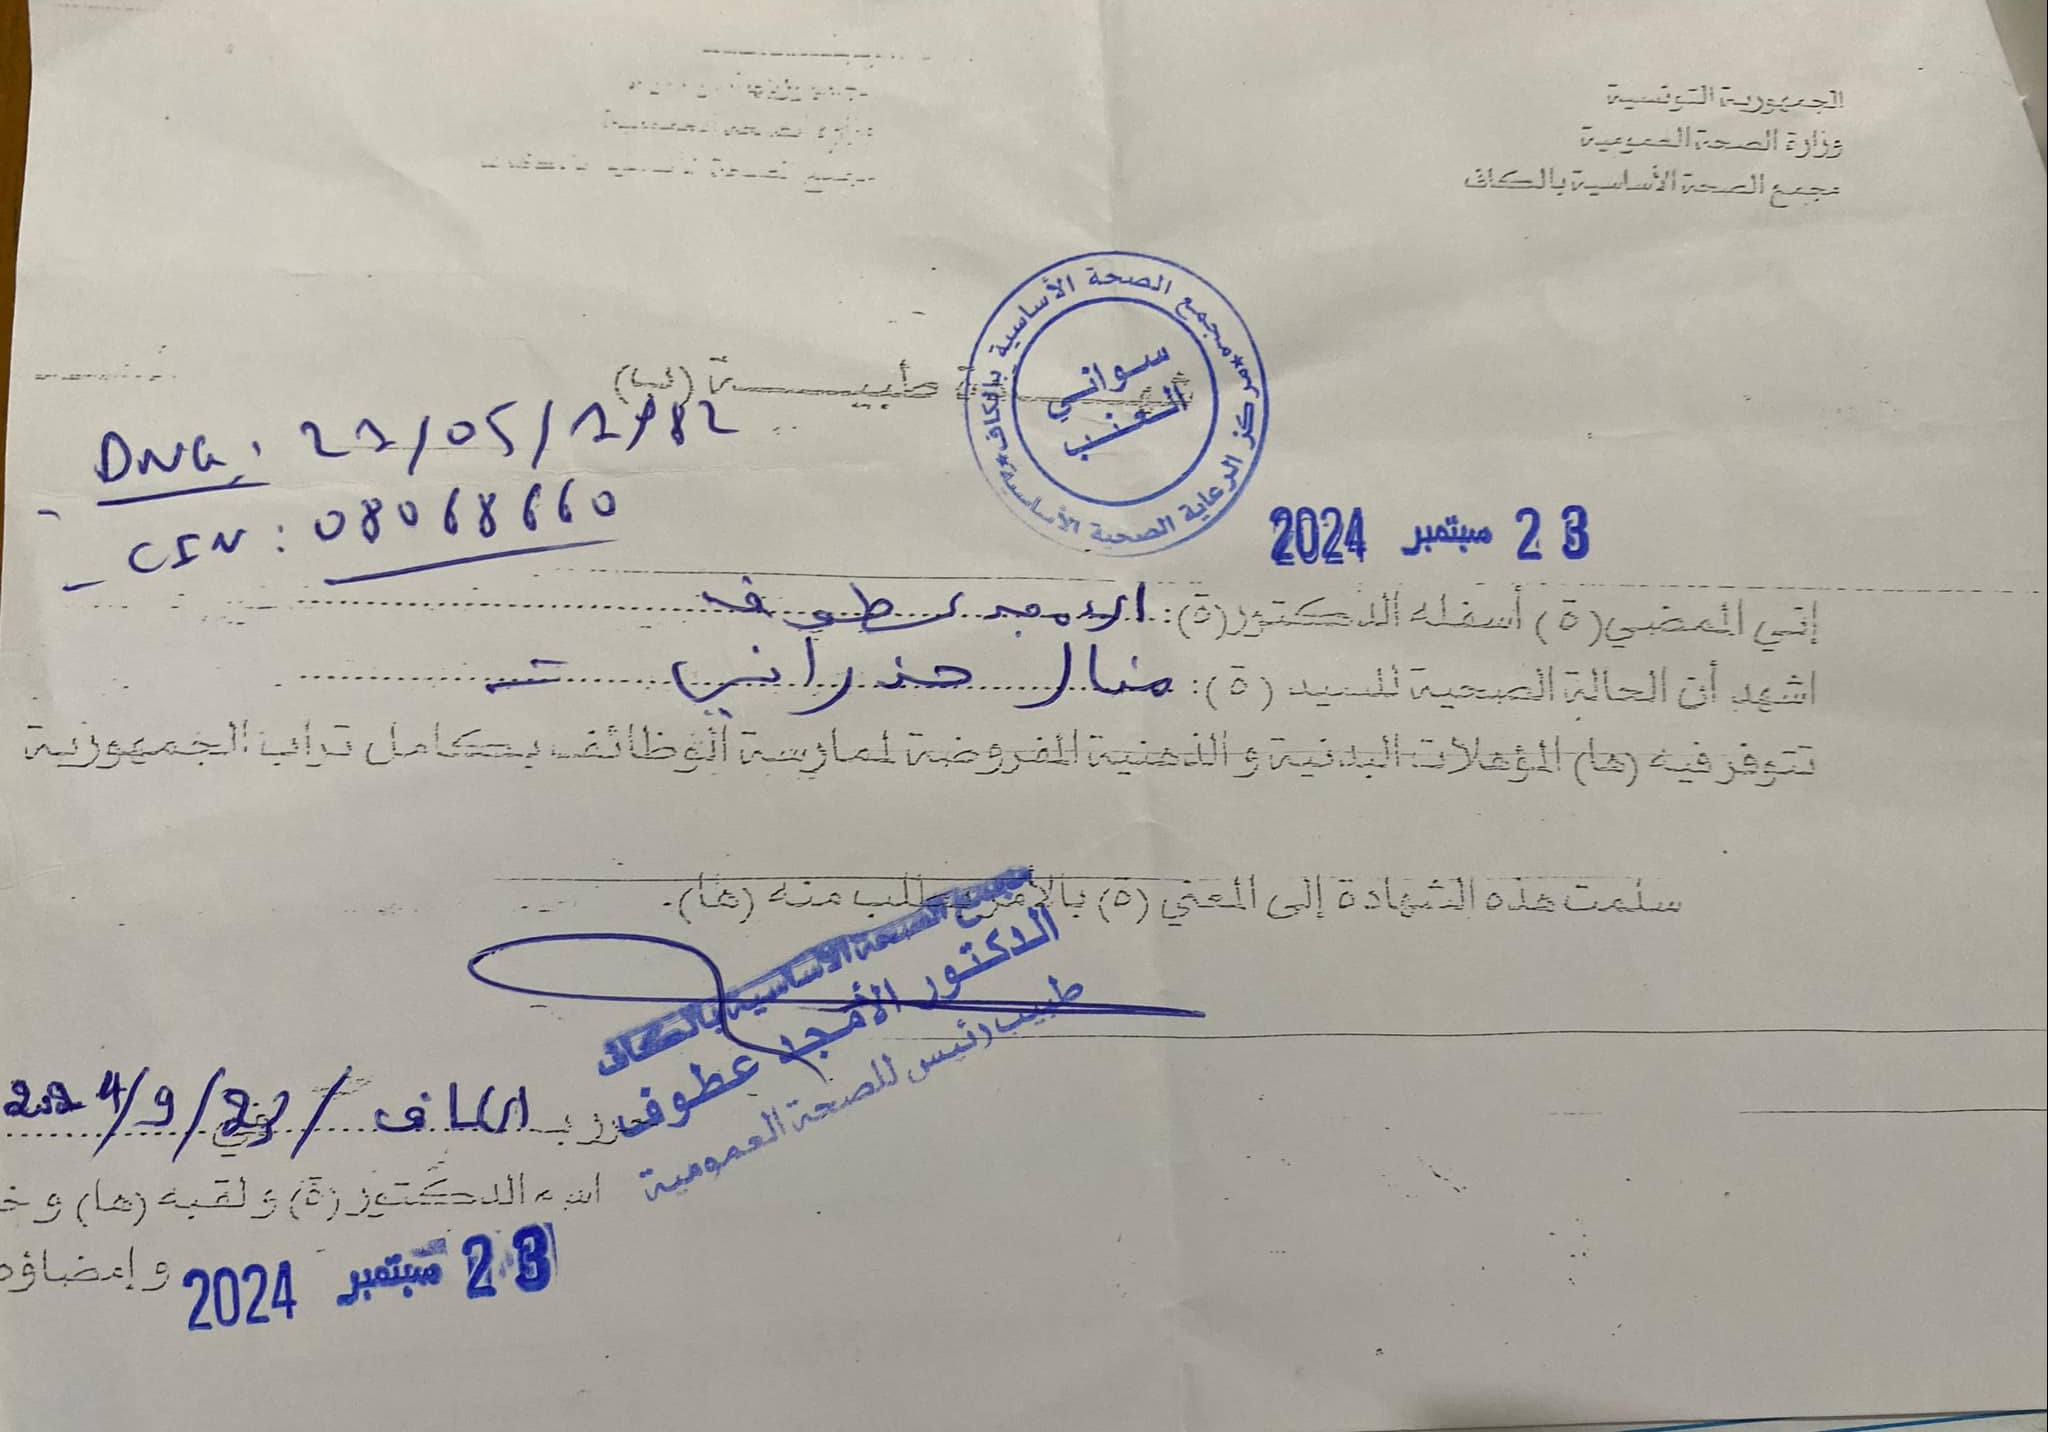 الجمهورية التونسية
وزارة الصحة العمومية
مجمع الصحة الأساسية بالكاف
مجمع الصحة الأساسية بالكاف
مركز الرعاية الصحية الأساسية
سواني
العنب
طبيـــــــة (ب)
DNG: 21/05/1982
- CIN : 08068660
23 سبتمبر 2024
إني الممضي (ة) أسفله الدكتور(ة): الامجد عطوف
اشهد أن الحالة الصحية للسيد (ة): منال حذراني
تتوفر فيه (ها) المؤهلات البدنية و الذهنية المفروضة لممارسة الوظائف بكامل تراب الجمهورية
سلمت هذه الشهادة إلى المعني (ة) بالأمر بطلب منه (ها).
مجمع الصحة الأساسية بالكاف
الدكتور الأمجد عطوف
طبيب رئيس للصحة العمومية
حرر بـ الكاف في 23/9/2024
اسم الدكتور(ة) و لقبه (ها) و
و إمضاؤه
23 سبتمبر 2024